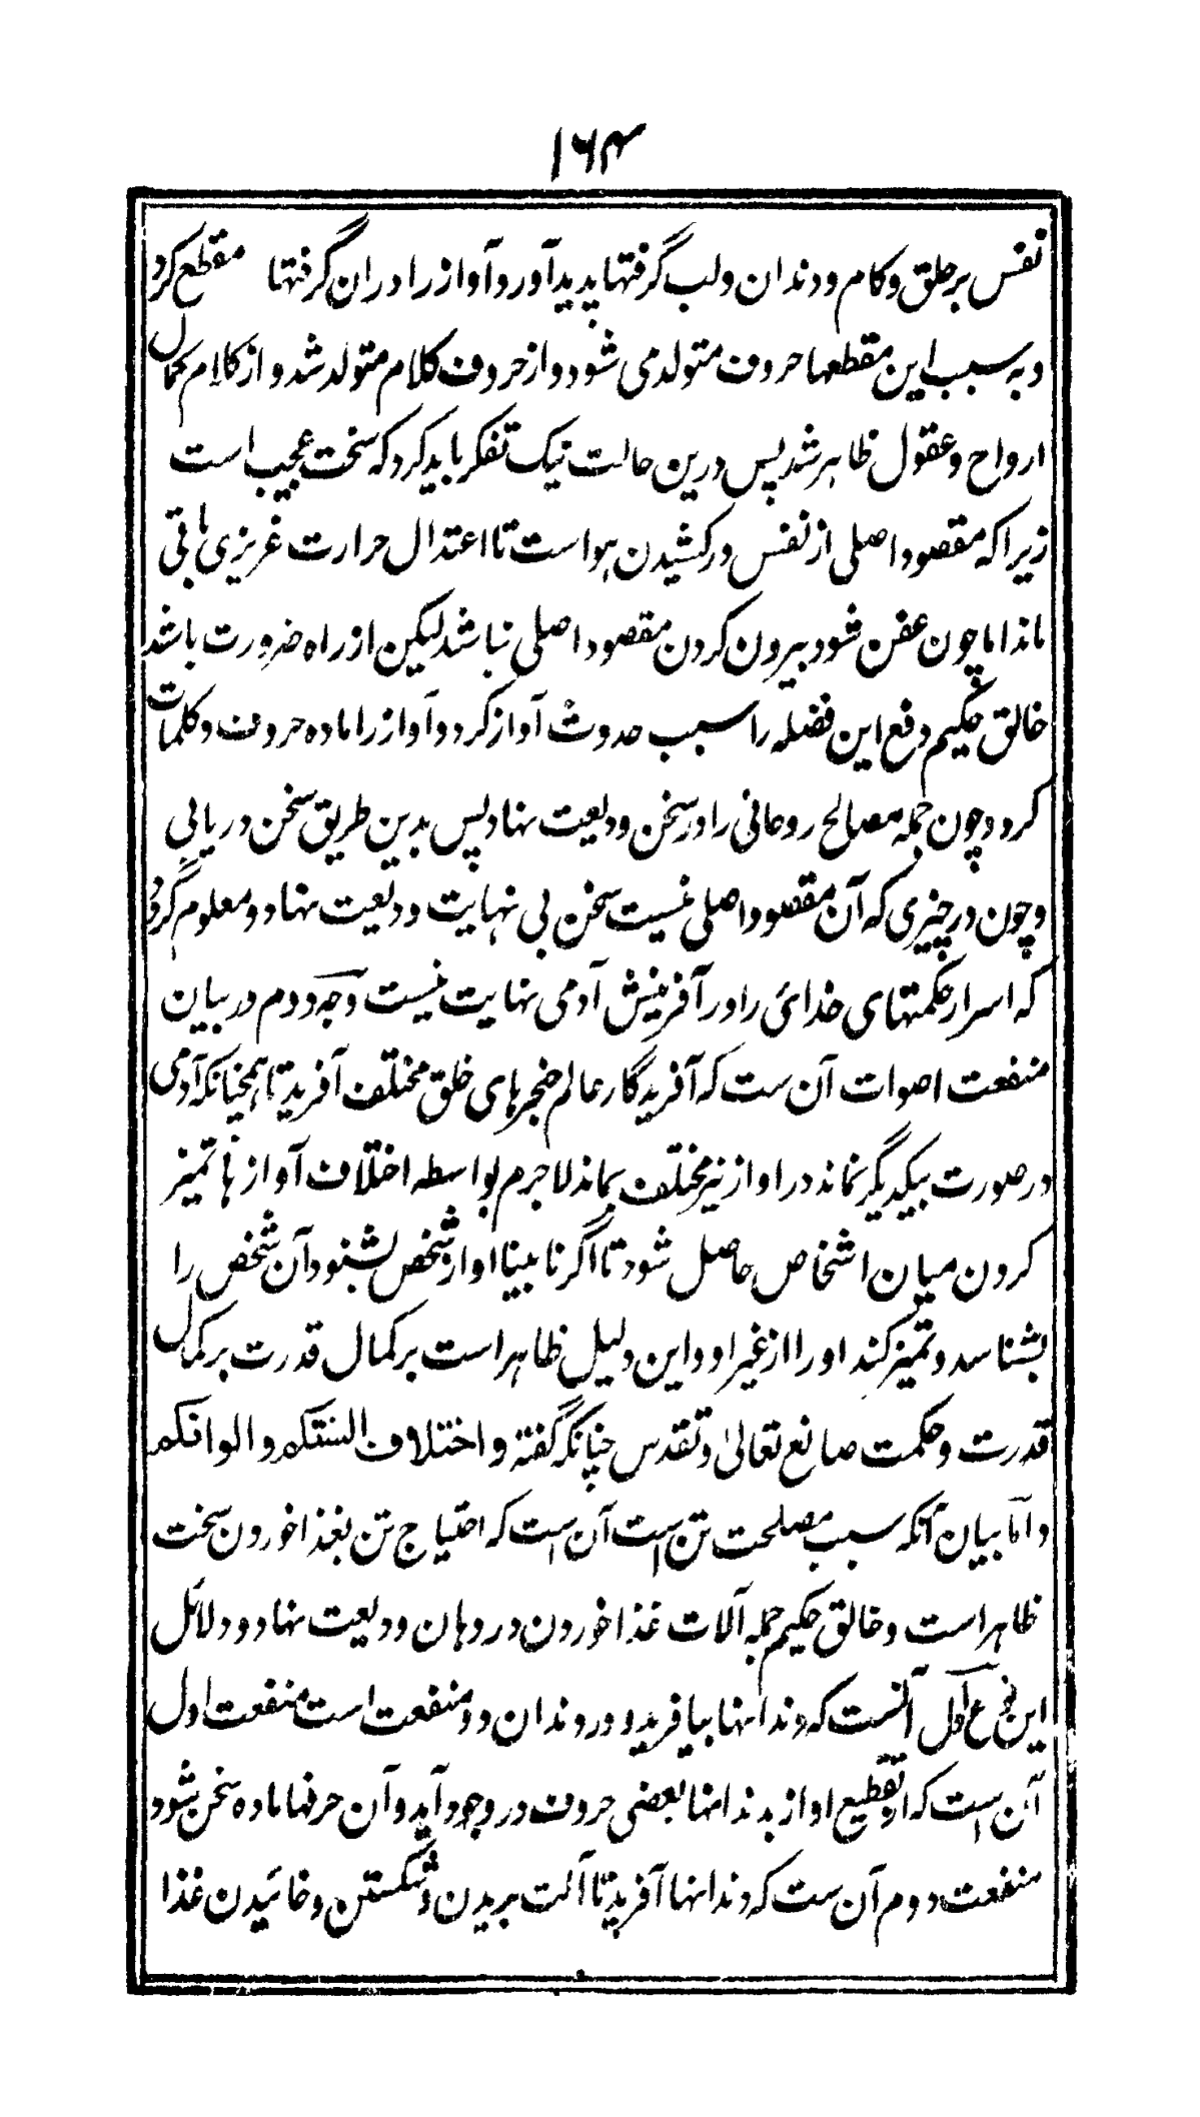 ۱۶۴
نفس بر حلق و کام و دندان و لب گرفتها پدید آورد و آواز را دران گرفتها مقطع کرد
و به سبب این مقطعها حروف متولد می شود و از حروف کلام متولد شد و از کلام کمال
ارواح و عقول ظاهر شد پس درین حالت نیک تفکر باید کرد که سخت عجیب است
زیرا که مقصود اصلی از نفس در کشیدن هواست تا اعتدال حرارت غریزی باقی
ماند اما چون عفن شود بیرون کردن مقصود اصلی نباشد لیکن از راه ضرورت باشد
خالق حکیم دفع این فضله را سبب حدوث آواز کرد و آواز را ماده حروف و کلمات
کرد و چون جمله مصالح روحانی را در سخن ودیعت نهاد پس بدین طریق سخن دریابی
و چون در چیزی که آن مقصود اصلی نیست سخن بی نهایت ودیعت نهاد و معلوم گردد
که اسرار حکمتهای خدائی را در آفرینش آدمی نهایت نیست وجه دوم در بیان
منفعت اصوات آن ست که آفریدگار عالم خنجرهای خلق مختلف آفرید تا همچنانکه آدمی
در صورت بیکدیگر نماند در اواز نیز مختلف بماند لاجرم بواسطه اختلاف آوازها تمیز
کردن میان اشخاص حاصل شود تا اگر نابینا اواز شخص بشنود آن شخص را
بشناسد و تمیز کند او را از غیر او و این دلیل ظاهر است بر کمال قدرت بر کمال
قدرت و حکمت صانع تعالیٰ و تقدس چنانکه گفته و اختلاف السنتکم و الوانکم
و اما بیان آنکه سبب مصلحت تن است آن است که احتیاج تن بغذا خوردن سخت
ظاهر است و خالق حکیم جمله آلات غذا خوردن در دهان ودیعت نهاد و دلائل
این نوع اول آنست که دندانها بیافرید و در دندان دو منفعت است منفعت اول
آن است که از تقطیع اواز بدندانها بعضی حروف در وجود آید و آن حرفها ماده سخن شود
منفعت دوم آن ست که دندانها آفرید تا آلت بریدن و شکستن و خائیدن غذا